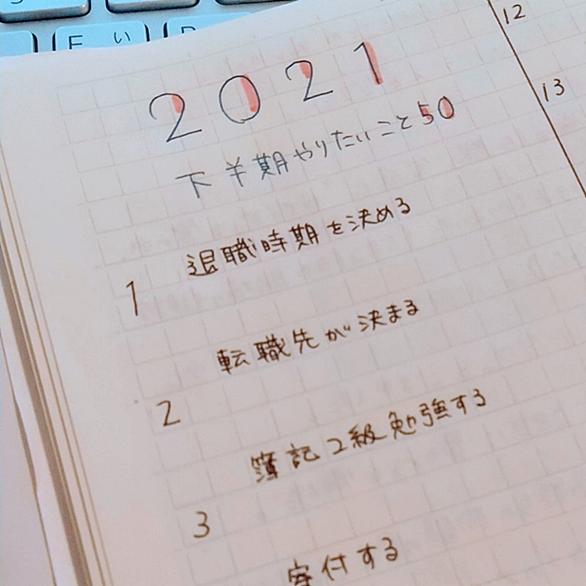 E い
2021
下半期やりたいこと50
1 退職時期を決める
2 転職先が決まる
3 簿記2級勉強する
寄付する
12
13